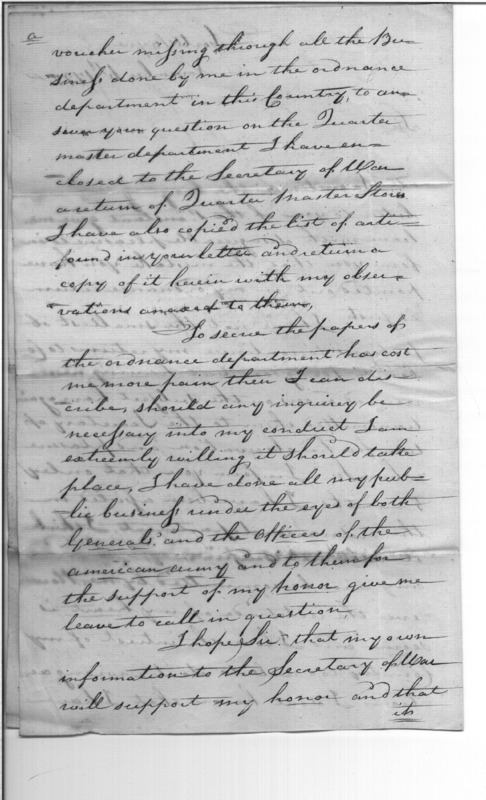 a
voucher missing through all the Bu=
siness done by me in the ordnance
department in this Country, to an=
swer your question on the Quarter
master department I have en=
closed to the Secretary of War
a return of Quarter Master Stores
I have also copied the list of arti=
found in your letter and return a
copy of it herein with my obser=
vations annexed to them,
To secure the papers of
the ordnance department has cost
me more pain then I can dis=
cribe, should any inquirey be
necessary into my conduct I am
extremly willing it should take
place, I have done all my pub=
lic business under the eyes of both
Generals, and the Officers of the
american army and to them for
the support of my honor give me
leave to call in question
I hope Sir, that my own
information to the Secretary of War
will support my honor and that
its